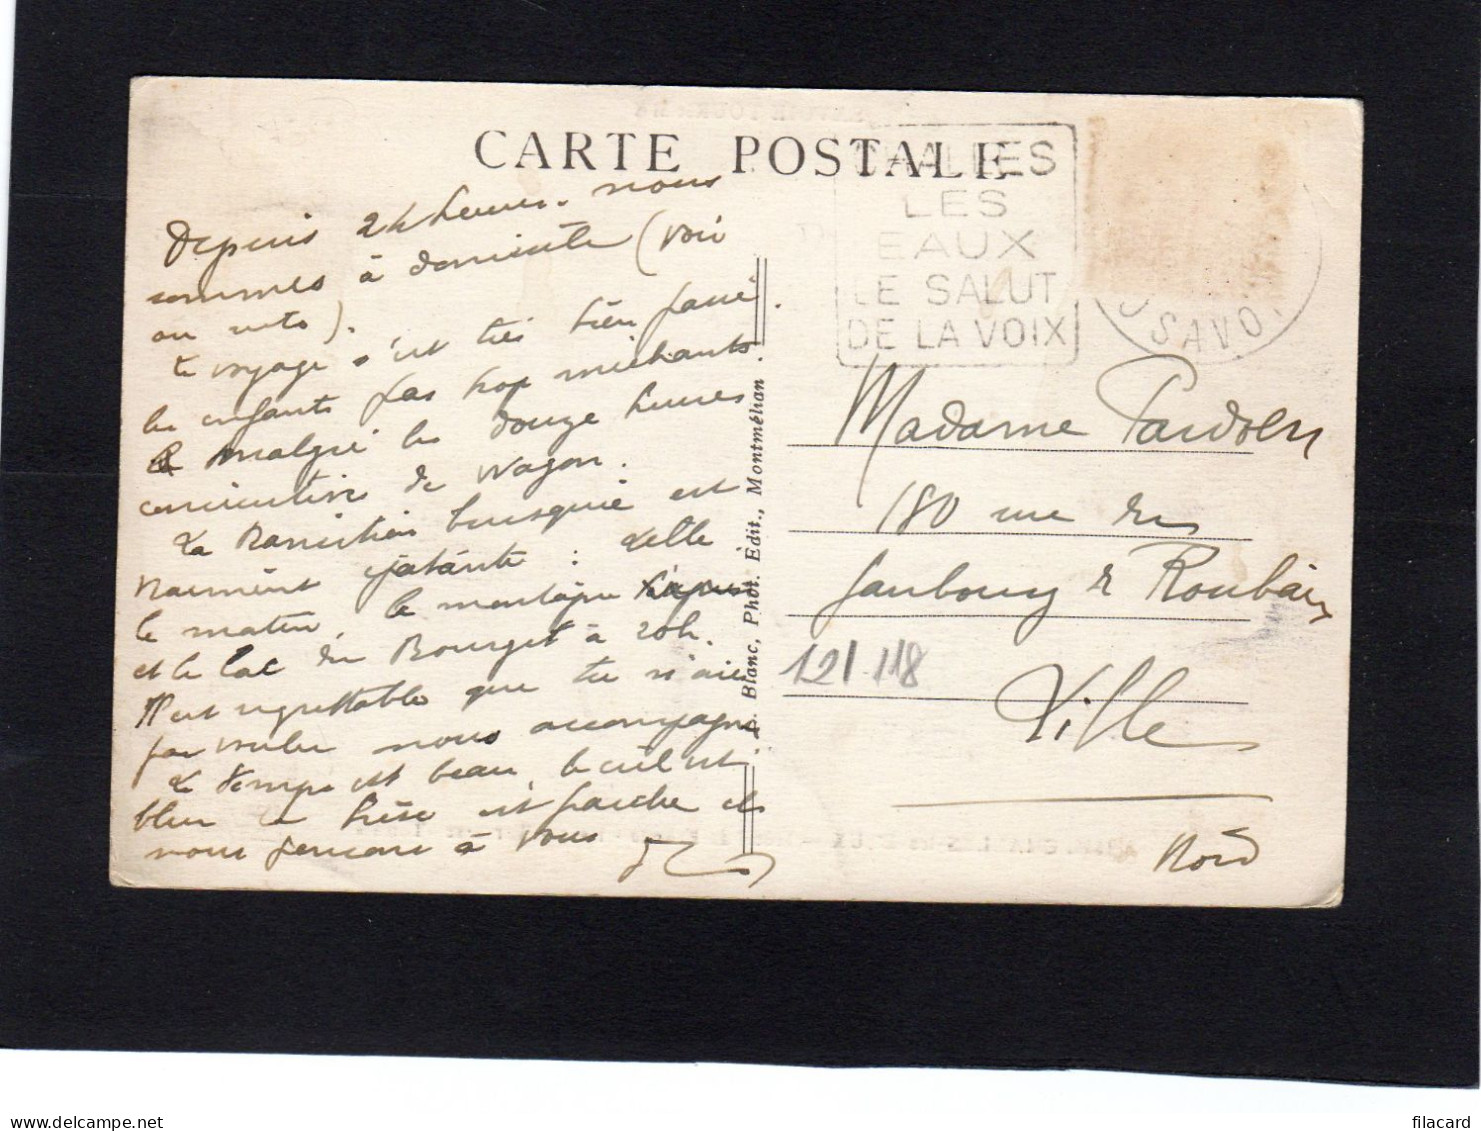 CARTE POSTALE
Depuis 24 heures. nous
sommes à domicile (voir
au verso).
Le voyage s'est très bien passé.
les enfants pas trop méchants.
malgré les douze heures
consécutives de wagon.
La transition brusquée est
vraiment épatante : Lille
le matin, la montagne
et le lac du Bourget à 20h.
Il est regrettable que tu n'aies
pas voulu nous accompagner
Le temps est beau, le ciel est
bleu la brise est fraiche et
nous pensons à vous
L. Blanc, Phot. Édit., Montmélian
CHALLES
LES
EAUX
LE SALUT
DE LA VOIX
SAVO.
Madame Pardoen
180 rue du
faubourg de Roubaix
121.118
Lille
Nord
filacard
www.delcampe.net